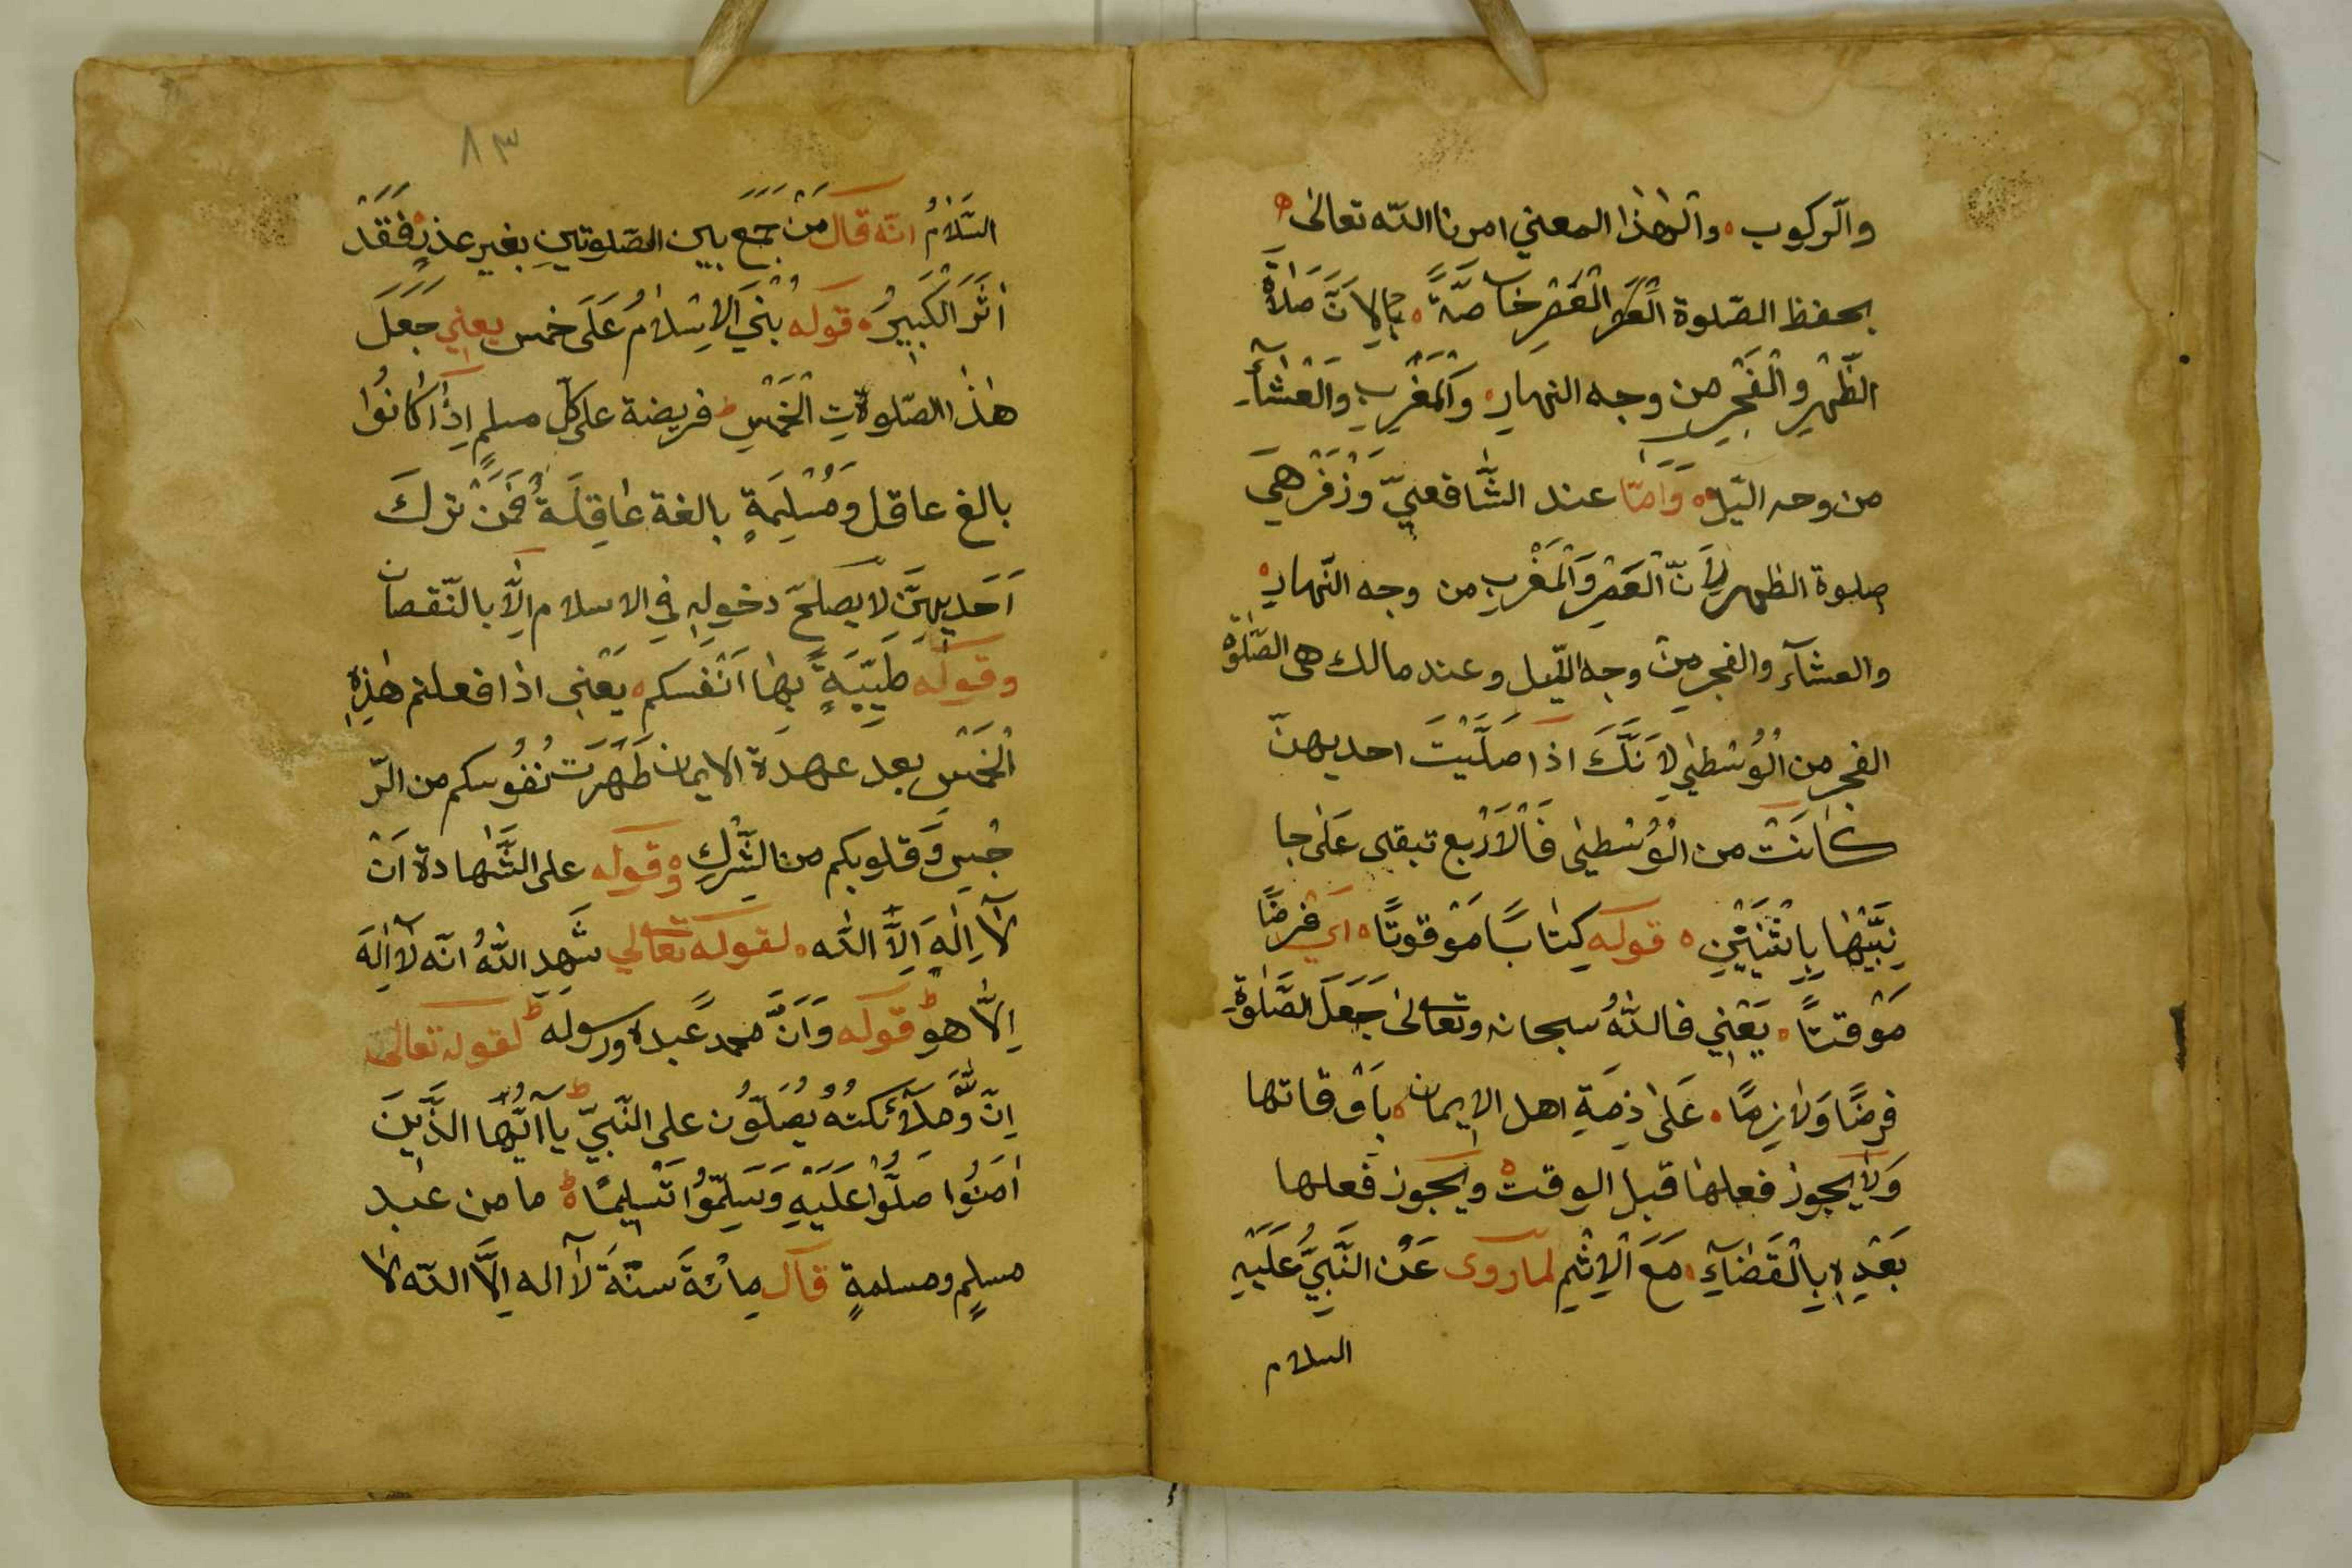 والرّكوب ٥ والهٰذا المعني امرنا اللّه تعالٰى ٥
بحفظ الصّلوة العصر العَصْرِ خاصَّةً ٥ لِاَنَّ صَلاةَ
الظُّهْرِ والْفَجْرِ من وجه النهار ٥ وَالمَغْرِبِ وَالْعَشآءِ
من وجه الّيل ٥ وَامّا عند الشّافعيّ وَزُفَرْ هِيَ
صلوة الظهر لِاَنّ الْعَصْرَ وَالْمَغْرِبِ من وجه النّهارِ ٥
والعشآء والفجر مِنْ وجه اللّيل وعند مالك هى الصّلٰوة
الفجر من الْوُسْطٰي لِاَنَّكَ اذا صَلَّيْتَ احديهنّ
كانَتْ من الْوُسْطٰي فَالْاَرْبع تبقى عَلٰى جا
نِبَيْها بِاثْنَيْنِ ٥ قوله كِتٰابًا مَوْقوتًا ٥ اى فرضًا
مَوْقتًا ٥ يَعْنِي فاللّٰهُ سبحانه وتعالٰى جَعَلَ الصَّلٰوةَ
فرضًا وَلازِمًا ٥ عَلٰى ذِمَةِ اهل الايمان ٥ بِاَوْقاتها
وَلا يجوز فعلها قبل الوقت ٥ ويجوز فعلها
بَعْدِهِ بِالْقَضآءِ ٥ مَعَ الْاِثْمِ لما روى عَنْ النَّبِيِّ عَلَيْهِ
السلام
٨٣
السَّلامُ انّه قال مَنْ جَمَعَ بين الصّلوتينِ بغير عذرٍ فَقَدْ
اَثَرَ الْكَبِيرَ ٥ قوله بُنِيَ الاِسْلامُ عَلَى خمس يعني جَعَلَ
هٰذا الصّلوةِ الْخَمْسِ فريضة على كلّ مسلمٍ اِذا كانُوا
بالغ عاقل وَمُسْلِمَةٍ بالغة عاقِلَةٌ فَمَنْ ترك
اَحَديهِنَّ لا يصلحّ دخولِهِ فِي الاسلام اِلاَّ بالنّقصان
وقوله طَيِّبَةً بِها اَنْفسكم ٥ يَعْنِى اذا فعلتم هٰذِهِ
الْخَمْسِ بعد عهدة الايمان طَهَرَتْ نُفُوسكم من الرّ
جْسِ وَقلوبكم من الشِّرْكِ ٥ وقوله على الشّهادة اَنْ
لآ اِلٰهَ اِلاَّ اللّٰه ٥ لقوله تعالي شَهِدَ اللّٰهُ انّه لآ اِلٰهَ
اِلاّ هو ط قوله وَاَنَّ محمدً عبده ورسوله ط لقوله تعالى
اِنّ وَمَلآئكتهُ يُصَلّوُن على النّبيّ ط يآ ايّها الذَّينَ
اٰمَنُوا صَلُّوا عَلَيْهِ وَسَلِّمُوا تَسْلِيمًا ط ما من عبد
مسلمٍ ومسلمةٍ قال مِائَةَ سنّةَ لآ اله اِلاّ اللّه لا